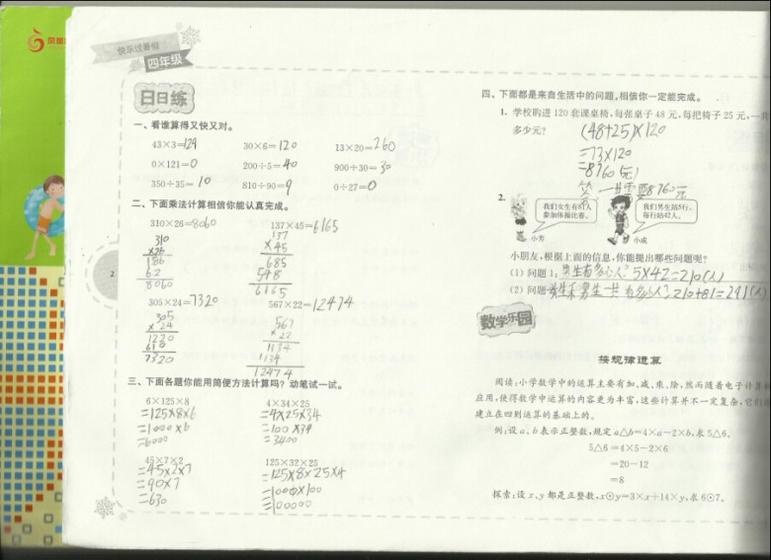 快乐过暑假
四年级
日日练
一、看谁算得又快又对。
43×3=129 30×6=120 13×20=260
0×121=0 200÷5=40 900÷30=30
350÷35=10 810÷90=9 0÷27=0
二、下面乘法计算相信你能认真完成。
310×26=8060 137×45=6165
310
×26
186
62
8060
137
×45
685
548
6165
305×24=7320 567×22=12474
305
×24
1220
610
7320
567
×22
1134
1134
12474
三、下面各题你能用简便方法计算吗？动笔试一试。
6×125×8 4×34×25
=125×8×6 =4×25×34
=1000×6 =100×34
=6000 =3400
45×7×2 125×32×25
=45×2×7 =125×8×25×4
=90×7 =1000×100
=630 =100000
2
四、下面都是来自生活中的问题,相信你一定能完成。
1. 学校购进 120 套课桌椅,每张桌子 48 元,每把椅子 25 元,一共
多少元?
(48+25)×120
=73×120
=8760(元)
答 一共需要8760元
2.
我们女生有81人
参加体操比赛。
我们男生站5行,
每行站42人。
小芳 小成
小朋友,根据上面的信息,你能提出哪些问题呢?
(1) 问题1:男生有多少人? 5×42=210(人)
(2) 问题 女生和男生一共有多少人? 210+81=291(人)
数学乐园
按规律运算
阅读:小学数学中的运算主要有加、减、乘、除,然而随着电子计算机
应用,使得数学中运算的内容更为丰富,这些计算并不一定复杂,它们
建立在四则运算的基础上的。
例:设 a、b 表示正整数,规定 a△b=4×a-2×b,求 5△6。
5△6=4×5-2×6
=20-12
=8
探索:设 x、y 都是正整数,x⊙y=3×x+14×y,求 6⊙7。